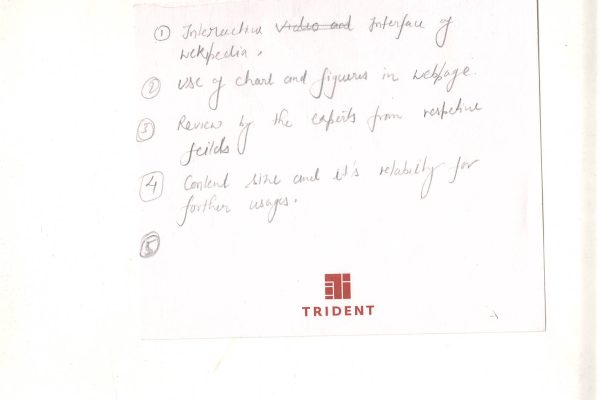 ① Interactive Video and Interface of
wekipedia.
② Use of chart and figures in webpage.
③ Review by the experts from respective
feilds
4 Content size and it's relability for
forther usages.
5
TRIDENT